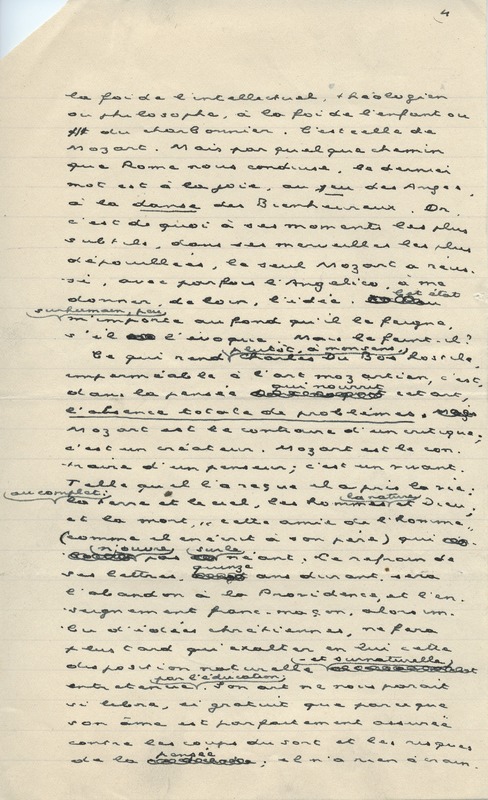 4
la foi de l'intellectuel, théologien
ou philosophe, à la foi de l'enfant ou
du charbonnier. C'est celle de
Mozart. Mais par quelque chemin
que Rome nous conduise, le dernier
mot est à la joie, au jeu des Anges,
à la danse des Bienheureux. Or,
c'est de quoi à ses moments les plus
subtils, dans ses merveilles les plus
dépouillées, le seul Mozart a réus-
si, avec parfois l'Angelico, à me
donner, de loin, l'idée. Cet état
surhumain, peu
m'importe au fond qu'il le feigne,
s'il l'évoque. Mais le feint-il?
Ce qui rend plutôt, à mon sens,
Charles Du Bos hostile,
imperméable à l'art mozartien, c'est,
dans la pensée qui nourrit cet art,
l'absence totale de problèmes.
Mozart est le contraire d'un critique;
c'est un créateur. Mozart est le con-
traire d'un penseur; c'est un vivant.
Telle qu'il l'a reçue il a pris la vie:
au complet:
la Terre et le ciel, les hommes, la nature et Dieu,
et la mort, "cette amie de l'homme"
(comme il en écrit à son père) qui
n'ouvre pas sur le néant. Le refrain de
ses lettres, quinze ans durant, sera
l'abandon à la Providence, et l'en-
seignement franc-maçon, alors im-
bu d'idées chrétiennes, ne fera
plus tard qu'exalter en lui cette
disposition naturelle - et surnaturelle
entretenue par l'éducation. Son art ne nous paraît
si libre, si gratuit que parce que
son âme est parfaitement assurée
contre les coups du sort et les risques
de la pensée; il n'a rien à crain-